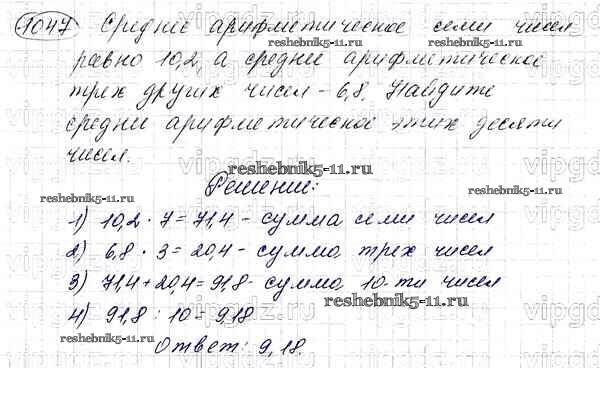 1047 Среднее арифметическое семи чисел
reshebnik5-11.ru reshebnik5-11.ru
равно 10,2, а среднее арифметическое
трех других чисел - 6,8. Найдите
среднее арифметическое этих десяти
чисел.
reshebnik5-11.ru
Решение:
reshebnik5-11.ru reshebnik5-11.ru
1) 10,2 · 7 = 71,4 - сумма семи чисел
2) 6,8 · 3 = 20,4 - сумма трех чисел
3) 71,4 + 20,4 = 91,8 - сумма 10-ти чисел
reshebnik5-11.ru
4) 91,8 : 10 = 9,18
reshebnik5-11.ru reshebnik5-11.ru
Ответ: 9,18.